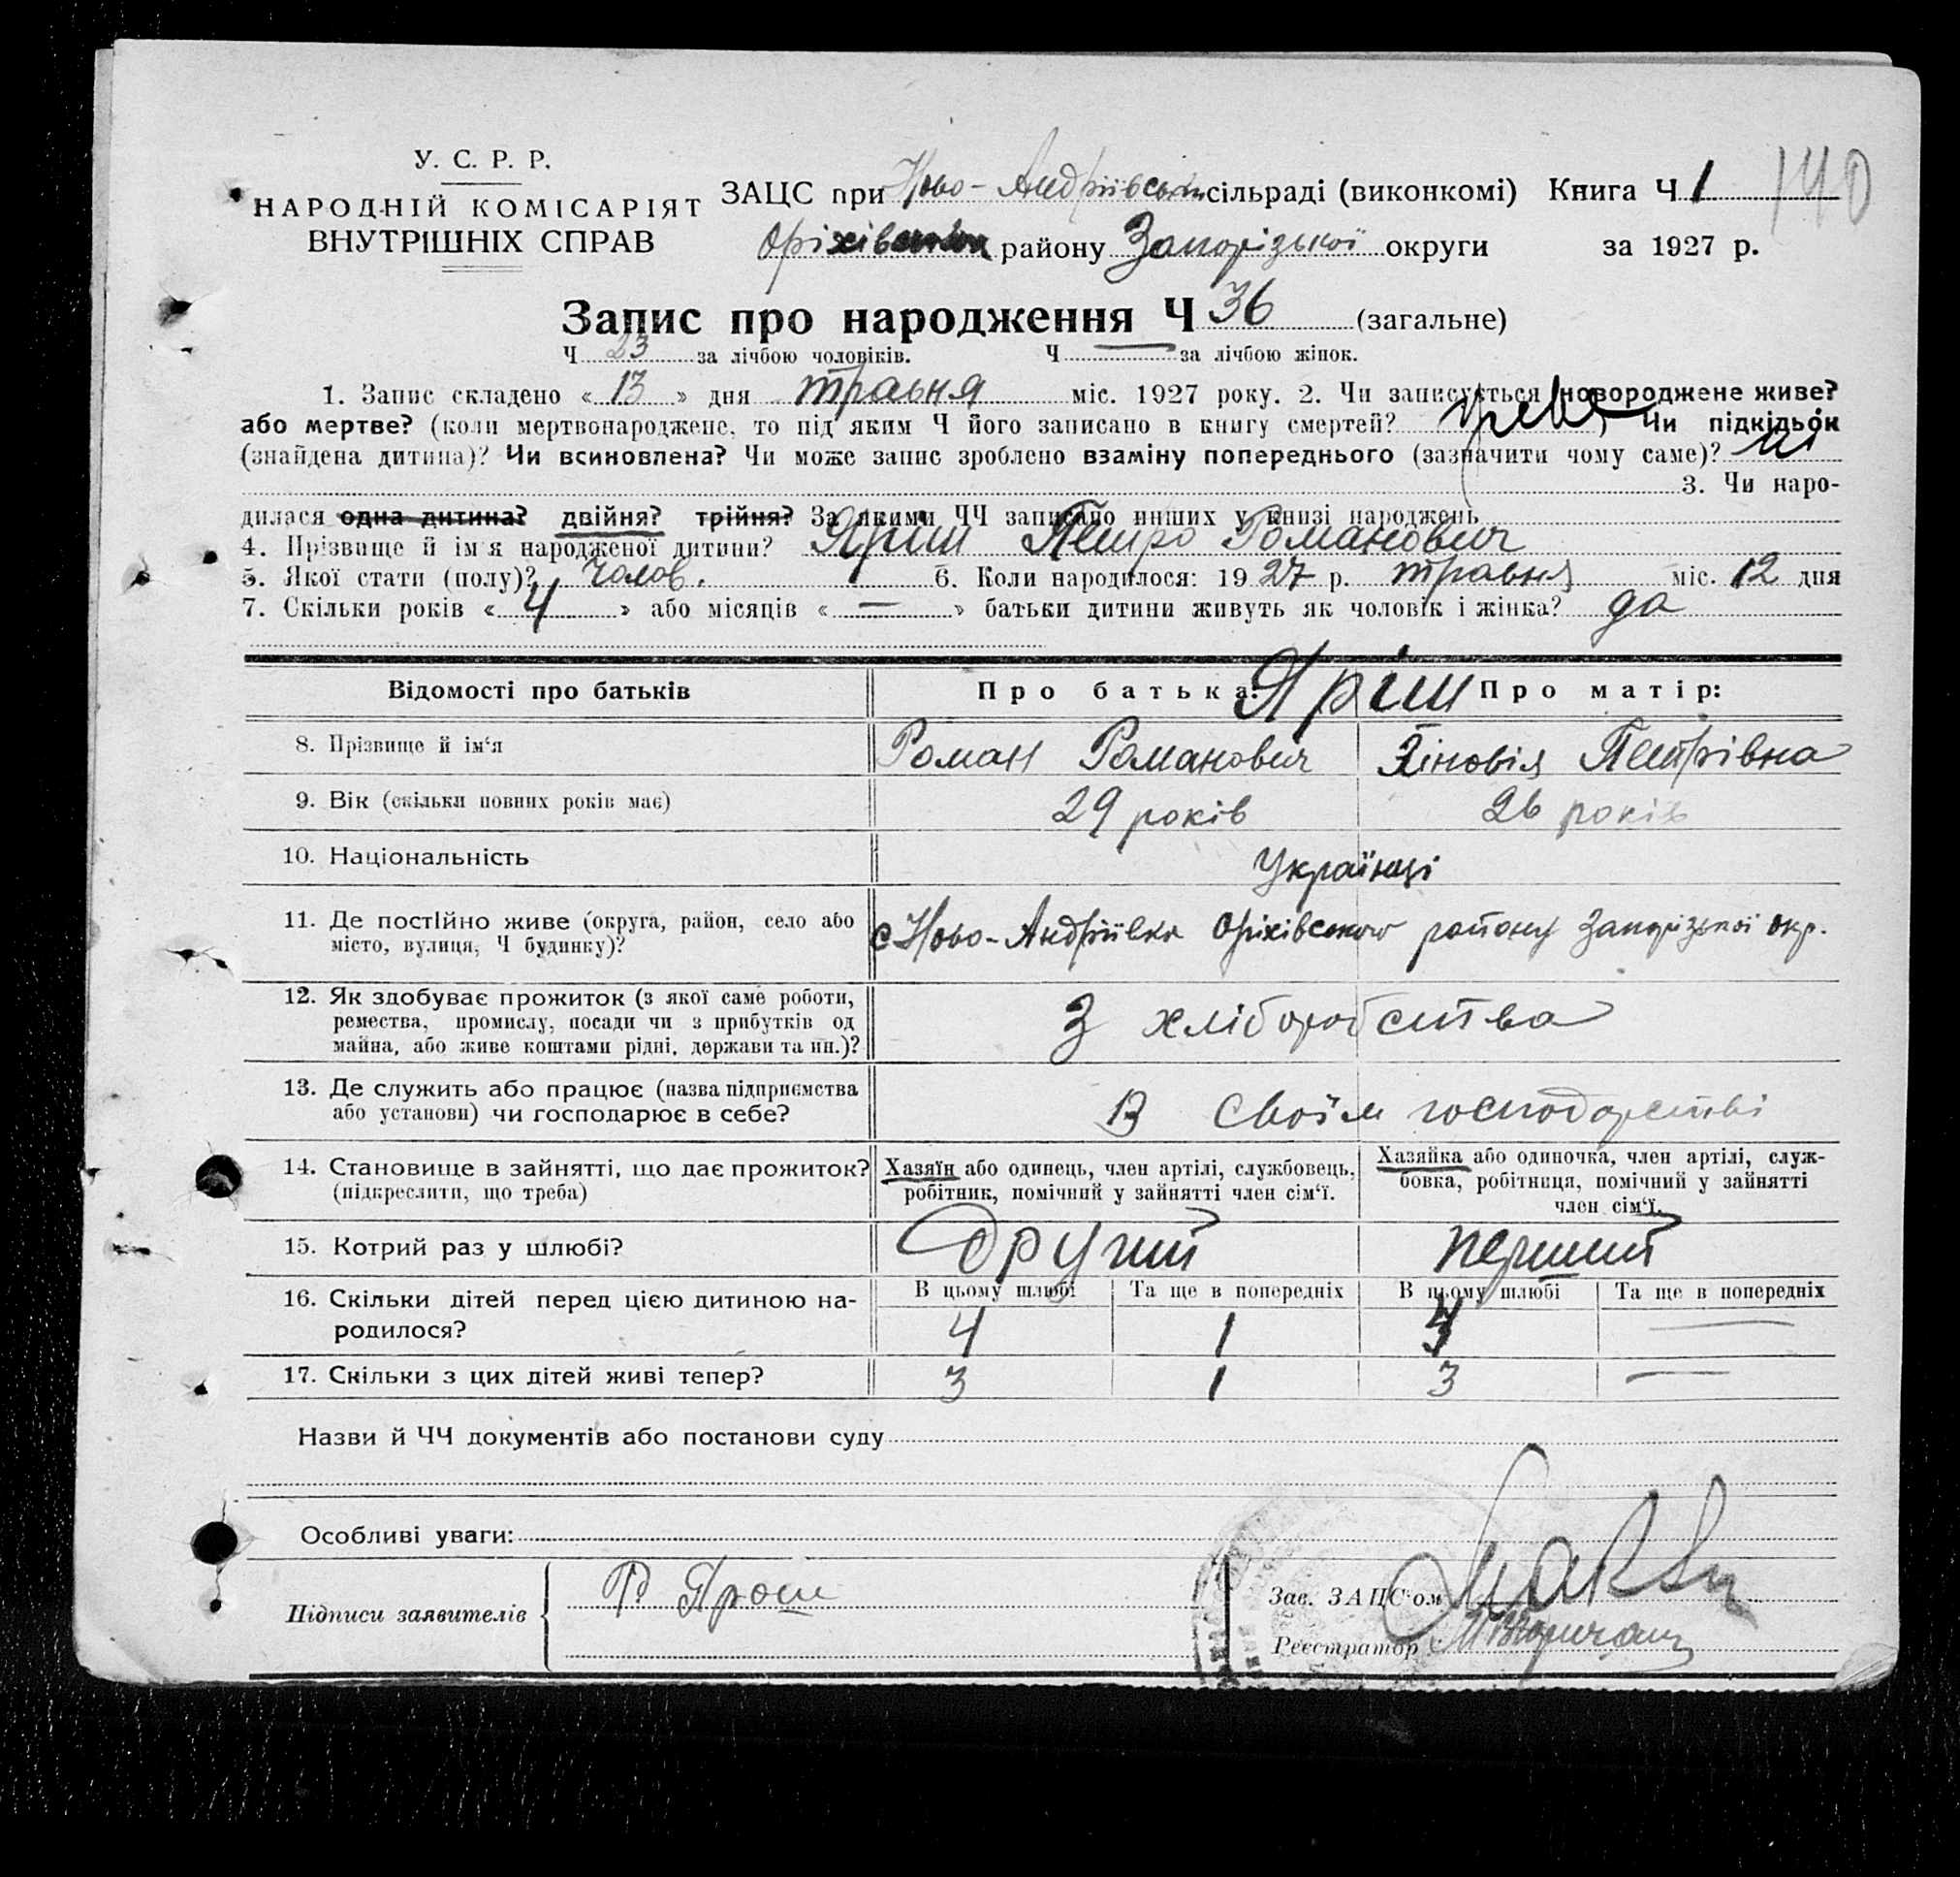 У. С. Р. Р.
НАРОДНІЙ КОМІСАРІЯТ
ВНУТРІШНІХ СПРАВ
ЗАЦС при Ново-Андріївській сільраді (виконкомі) Книга Ч 1 140
Оріхівського району Запорізької округи за 1927 р.
Запис про народження Ч 36 (загальне)
Ч 23 за лічбою чоловіків. Ч — за лічбою жінок.
1. Запис складено « 13 » дня травня міс. 1927 року. 2. Чи записується новороджене живе?
або мертве? (коли мертвонароджене, то під яким Ч його записано в книгу смертей? живе) Чи підкідьо́к
(знайдена дитина)? Чи всиновлена? Чи може запис зроблено взаміну попереднього (зазначити чому саме)? ні
3. Чи наро-
дилася одна дитина? двійня? трійня? За якими ЧЧ записано инших у книзі народжень
4. Прізвище й ім'я народженої дитини? Яріш Петро Романович
5. Якої стати (полу)? чолов. 6. Коли народилося: 1927 р. травня міс. 12 дня
7. Скільки років « 4 » або місяців « — » батьки дитини живуть як чоловік і жінка? да
Відомості про батьків Про батька: Яріш Про матір:
8. Прізвище й ім'я Роман Романович Зіновія Петрівна
9. Вік (скільки повних років має) 29 років 26 років
10. Національність Українці
11. Де постійно живе (округа, район, село або
місто, вулиця, Ч будинку)? с Ново-Андріївка Оріхівського району Запорізької окр.
12. Як здобуває прожиток (з якої саме роботи,
ремества, промислу, посади чи з прибутків од
майна, або живе коштами рідні, держави та ин.)? З хліборобства
13. Де служить або працює (назва підприємства
або установи) чи господарює в себе? В своїм господарстві
14. Становище в зайнятті, що дає прожиток?
(підкреслити, що треба)
Хазяїн або одинець, член артілі, службовець,
робітник, помічний у зайнятті член сім'ї.
Хазяйка або одиночка, член артілі, служ-
бовка, робітниця, помічний у зайнятті
член сім'ї.
15. Котрий раз у шлюбі? Другий перший
16. Скільки дітей перед цією дитиною на-
родилося?
В цьому шлюбі Та ще в попередніх В цьому шлюбі Та ще в попередніх
4 1 4 —
17. Скільки з цих дітей живі тепер? 3 1 3 —
Назви й ЧЧ документів або постанови суду
Особливі уваги:
Підписи заявителів Р Ярош
Зав. ЗАЦС'ом
Реєстратор